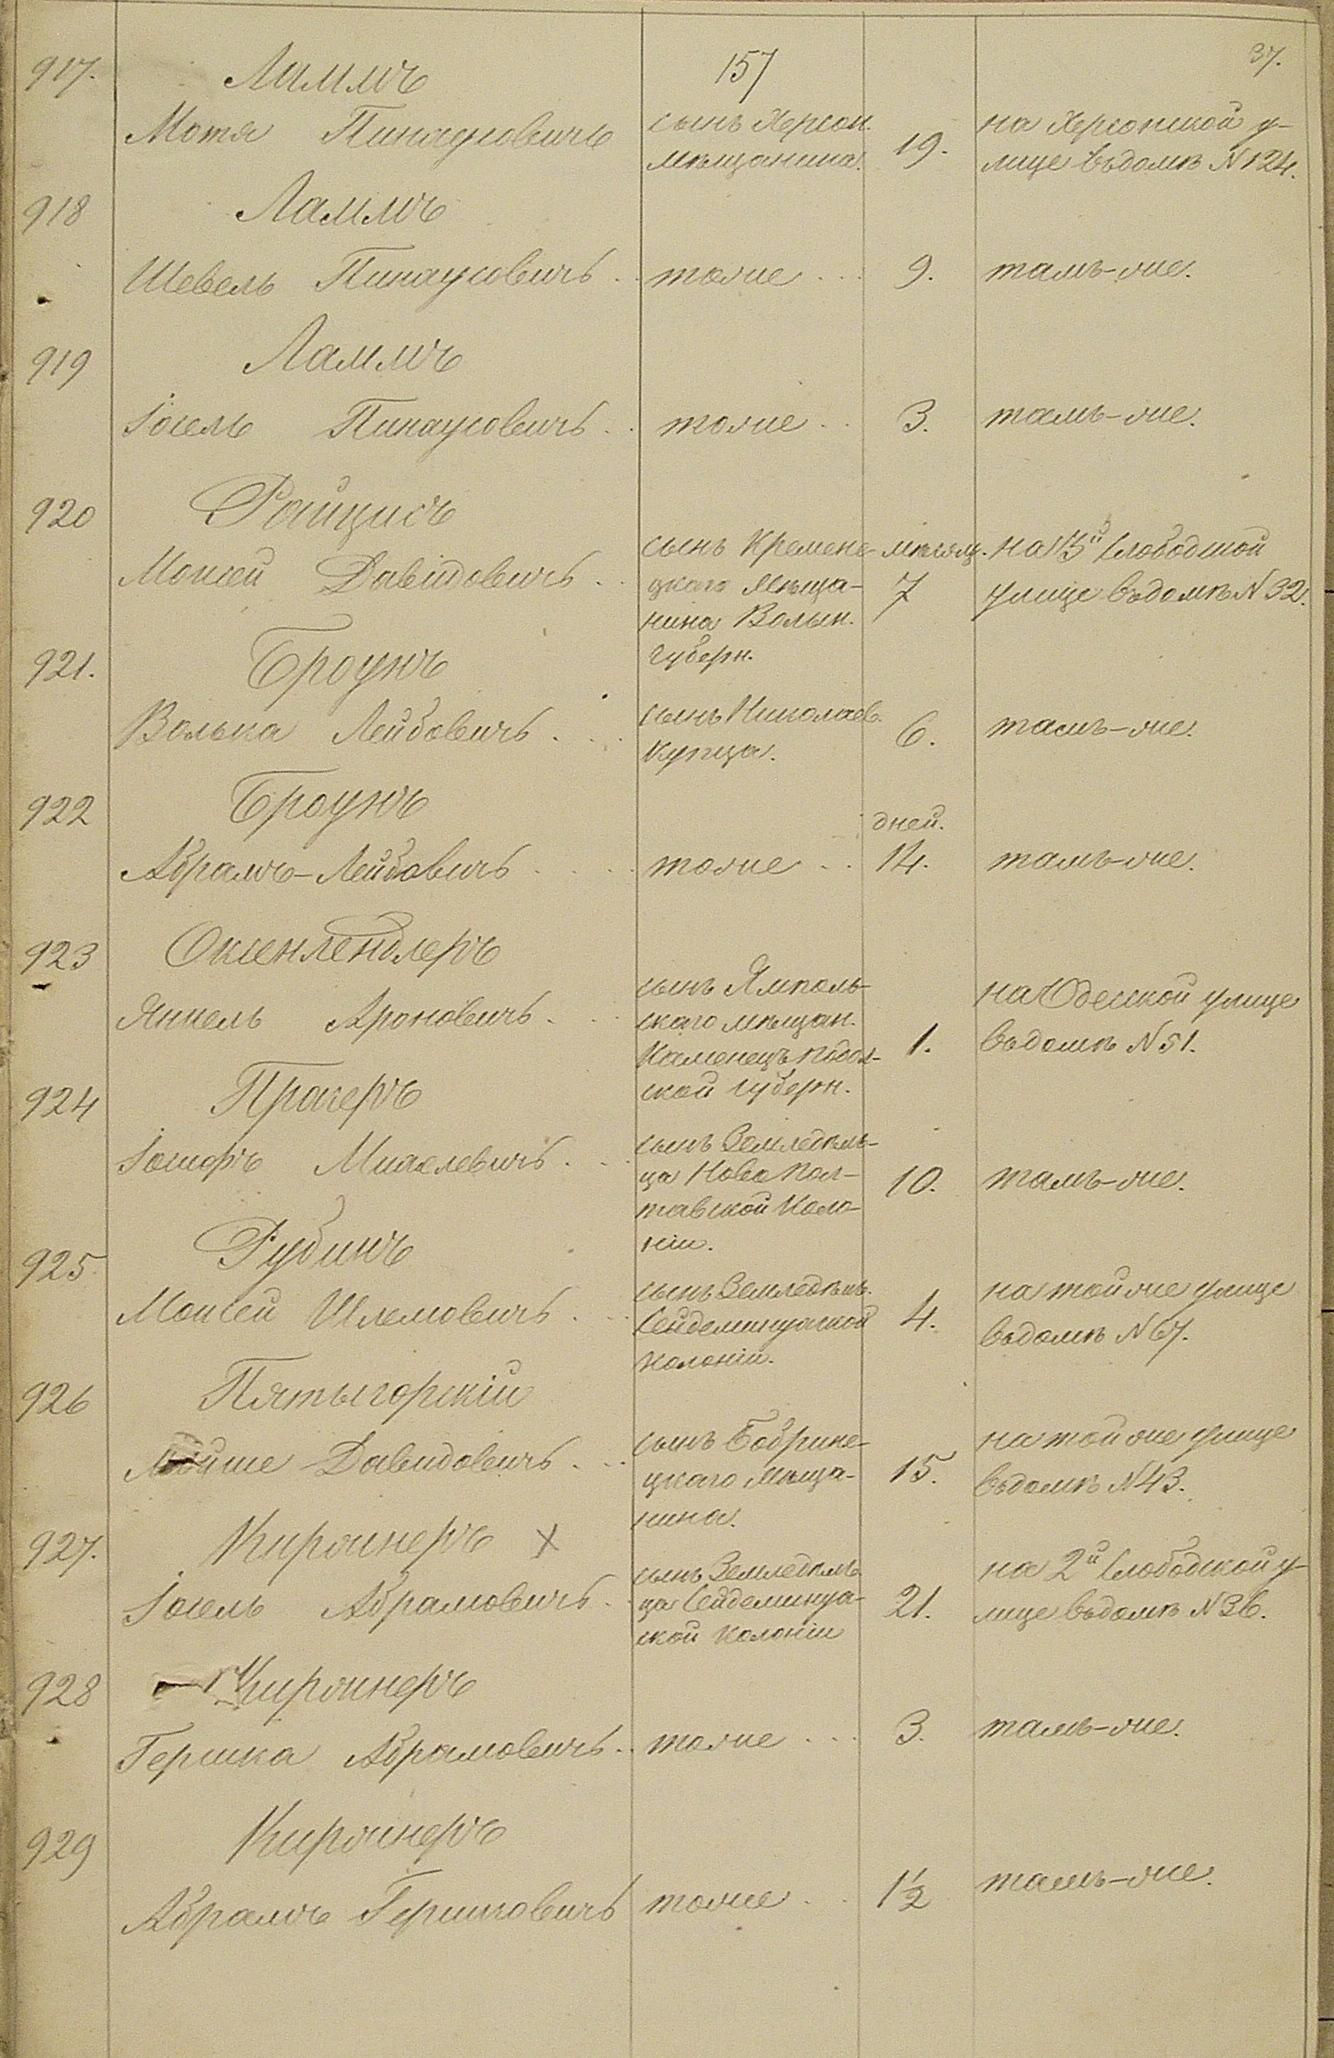 157
37.
917.
Лиммъ
Мотя Пинхусовичъ
сынъ Херсон.
мѣщанина.
19.
на Херсонской у-
лице въ домѣ N 124.
918
Ламмъ
Шевель Пинхусовичъ
тоже
9.
тамъ-же.
919
Ламмъ
Іосель Пинхусовичъ
тоже
3.
тамъ-же.
920
Райцисъ
Моисей Давидовичъ
сынъ Кремене-
цкаго Мѣща-
нина Волын.
Губерн.
мѣсяц.
7
на 3й Слободской
улице въ домѣ N 32.
921.
Броунъ
Волька Лейбовичъ
сынъ Николаев.
купца.
6.
тамъ-же.
922
Броунъ
Абрамъ-Лейбовичъ
тоже
дней.
14.
тамъ-же.
923
Оксенгендлеръ
Янкель Ароновичъ
сынъ Ямполь-
скаго мѣщан.
Каменецъ подол-
ской губерн.
1.
на Одесской улице
въ домѣ N 51.
924
Прагеръ
Іосифъ Михелевичъ
сынъ Земледѣль-
ца Новополт-
тавской Коло-
ніи.
10.
тамъ-же.
925
Рубинъ
Моисей Шлемовичъ
сынъ Земледѣль.
Сейдеминухской
колоніи.
4.
на той же улице
въ домѣ N 67.
926
Пятыгорскій
Мойше Давидовичъ
сынъ Бобрине-
цкаго Мѣща-
нина.
15.
на той же улице
въ домѣ N 43.
927.
Киржнеръ X
Іосель Абрамовичъ
сынъ Земледѣль-
ца Сейдеминух-
ской колоніи
21.
на 2й Слободской у-
лице въ домѣ N 36.
928
Киржнеръ
Гершка Абрамовичъ
тоже
3.
тамъ-же.
929
Киржнеръ
Абрамъ Гершковичъ
тоже
1½
тамъ-же.